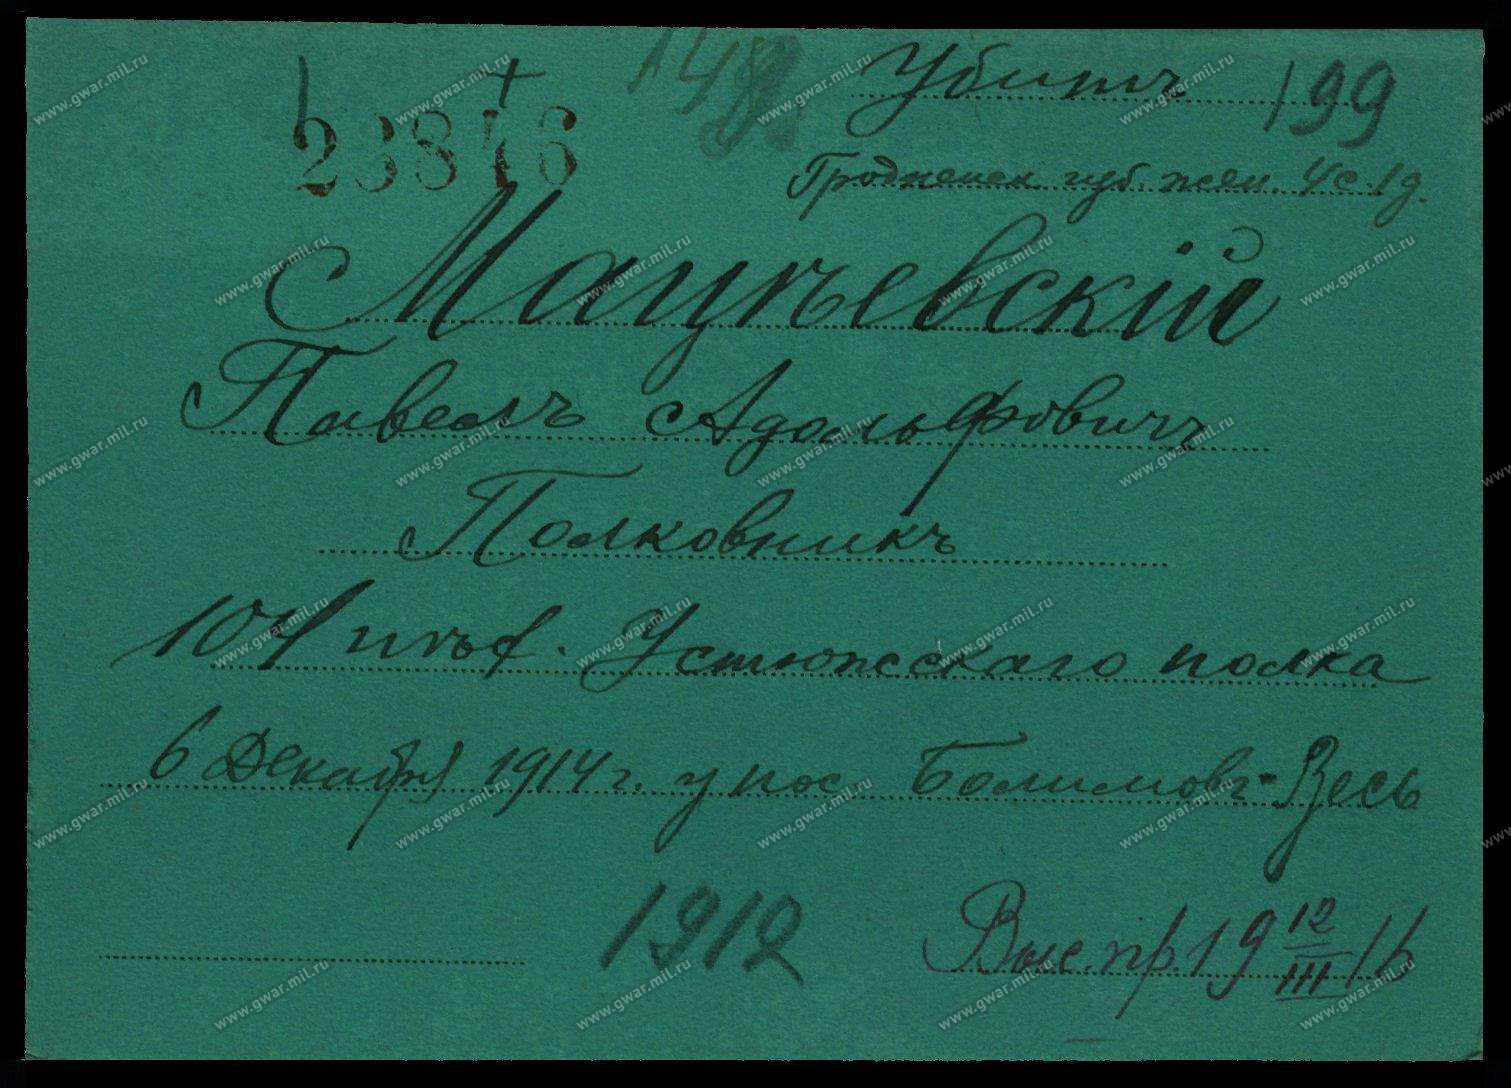 23846
148
Убитъ 199
Гродненск. губ. жен. 4 с. 1 д.
Мацѣевскій
Павелъ Адольфовичъ
Полковникъ
104 пѣх. Устюжскаго полка
6 Декабря 1914 г. у пос. Болимовъ-Весь
1912
Выс. пр. 19 12/III 16